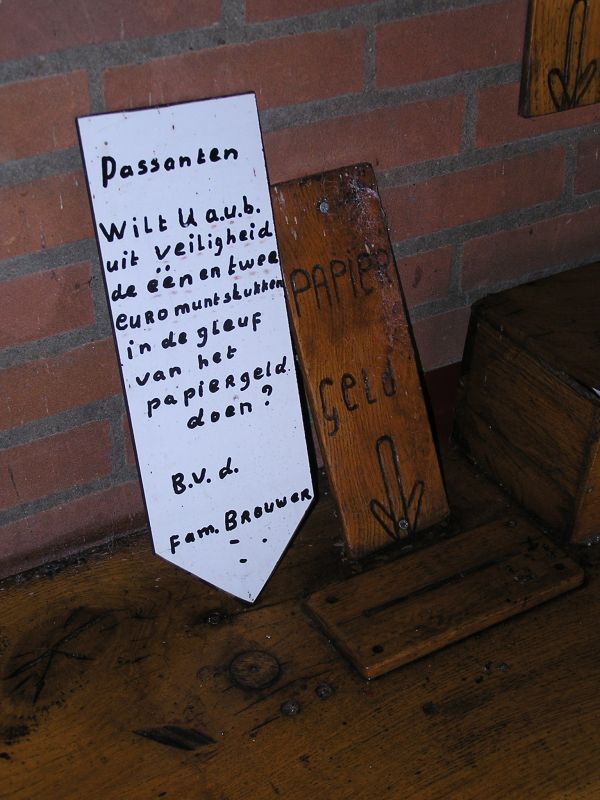 Passanten
Wilt U a.u.b.
uit veiligheid
de één en twee
euro muntstukken
in de gleuf
van het
papiergeld
doen?
B.V.d.
Fam. BROUWER
PAPIER
Geld